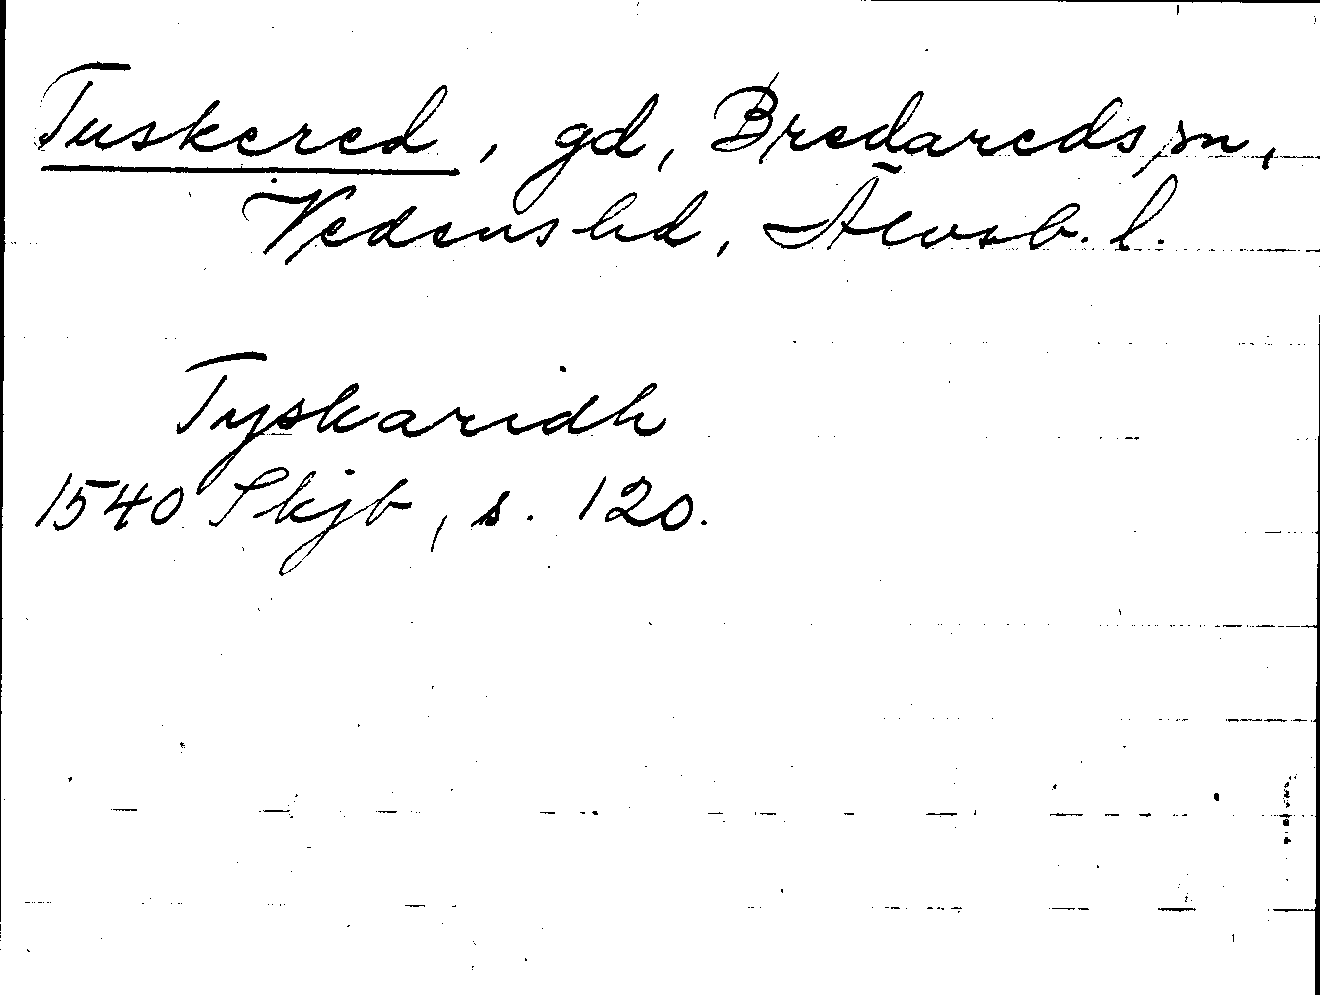 Tuskered, gd, Bredareds sn,
Vedens hd, Älvsb. l.
Tyskaridh
1540 Skjb, s. 120.